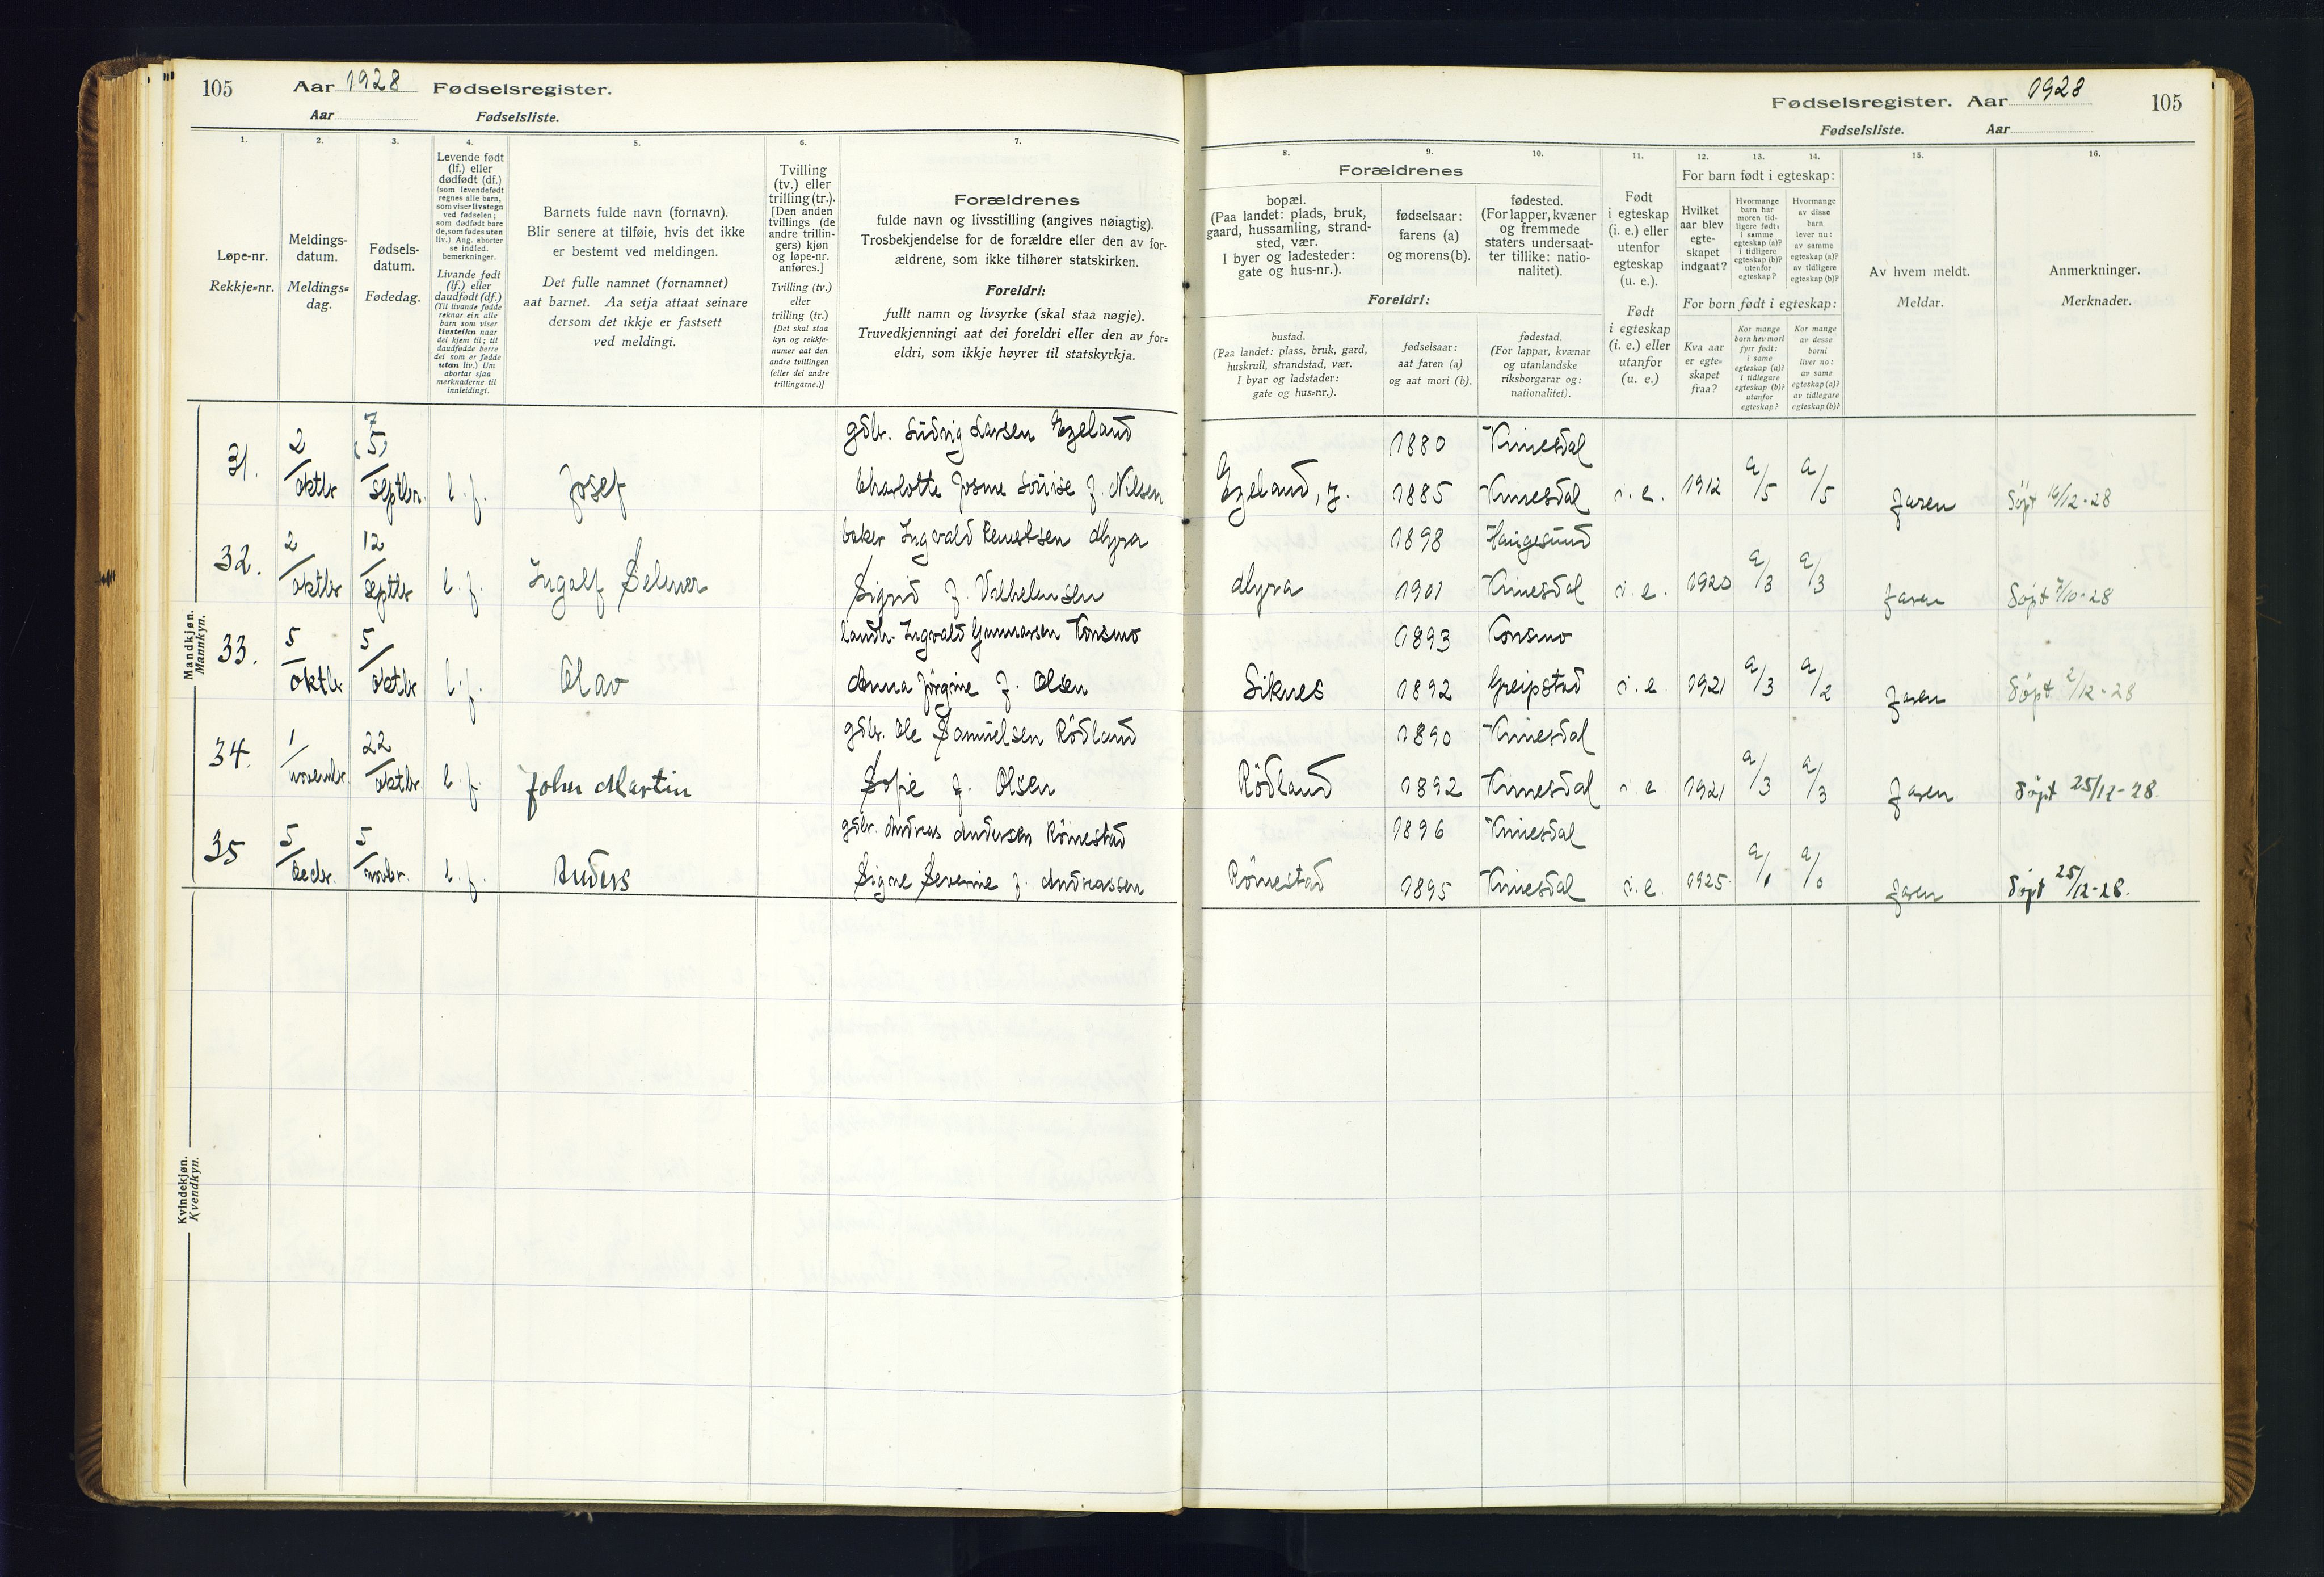 105 Aar 1928 Fødselsregister.
Aar Fødselsliste.
1. 2. 3. 4. 5. 6. 7.
Løpe-nr.
Rekkje-nr.
Meldings-
datum.
Meldings-
dag.
Fødsels-
datum.
Fødedag.
Levende født
(lf.) eller
dødfødt (df.)
(som levendefødt
regnes alle barn,
som viser livstegn
ved fødselen;
som dødfødt bare
de, som fødes uten
liv.) Ang. aborter
se indled.
bemerkninger.
Livande født
(lf.) eller
daudfødt (df.)
(Til livande fødde
reknar ein alle
barn som viser
livsteikn naar
dei kjem til; til
daudfødde berre
dei som er fødde
utan liv.) Um
abortar sjaa
merknaderne til
innleidingi.
Barnets fulde navn (fornavn).
Blir senere at tilføie, hvis det ikke
er bestemt ved meldingen.
Det fulle namnet (fornamnet)
aat barnet. Aa setja attaat seinare
dersom det ikkje er fastsett
ved meldingi.
Tvilling
(tv.) eller
trilling (tr.).
[Den anden
tvillings (de
andre trillin-
gers) kjøn
og løpe-nr.
anføres.]
Tvilling (tv.)
eller
trilling (tr.)
[Det skal staa
kyn og rekkje-
numer aat den
andre tvillingen
(eller dei andre
trillingarne.)]
Forældrenes
fulde navn og livsstilling (angives nøiagtig).
Trosbekjendelse for de forældre eller den av for-
ældrene, som ikke tilhører statskirken.
Foreldri:
fullt namn og livsyrke (skal staa nøgje).
Truvedkjenningi aat dei foreldri eller den av for-
eldri, som ikkje høyrer til statskyrkja.
Mandkjøn.
Mannkyn.
31. 2/oktbr 7 (5)/septbr. l. f. Josef
gdbr. Ludvig Larsen Egeland
Charlotte Josine Lovise f. Nilsen
32. 2/oktbr 12/septbr l. f. Ingolf Selmer
baker Ingvald Myra
Sigrid f. Vilhelmsen
33. 5/oktbr 5/oktbr l. f. Olav
landh. Ingvald Gunnarsen Konsmo
Anna Jörgine f. Olsen
34. 1/novembr 22/oktbr. l. f. John Martin
gdbr. Ole Samuelsen Rödland
Sofie f. Olsen
35 5/decbr. 5/novbr. l. f. Anders
gdbr. Andreas Andersen Römestad
Signe Severine f. Andreassen
Kvindekjøn.
Kvendkyn.
Fødselsregister. Aar 1928 105
Fødselsliste. Aar
8. 9. 10. 11. 12. 13. 14. 15. 16.
Forældrenes
bopæl.
(Paa landet: plads, bruk,
gaard, hussamling, strand-
sted, vær.
I byer og ladesteder:
gate og hus-nr.).
fødselsaar:
farens (a)
og morens (b).
fødested.
(For lapper, kvæner
og fremmede
staters undersaat-
ter tillike: natio-
nalitet).
Foreldri:
bustad.
(Paa landet: plass, bruk, gard,
huskrull, strandstad, vær.
I byar og ladstader:
gate og hus-nr.).
fødselsaar:
aat faren (a)
og aat mori (b).
fødestad.
(For lappar, kvænar
og utanlandske
riksborgarar og:
nationalitet).
Født
i egteskap
(i. e.) eller
utenfor
egteskap
(u. e.).
Født
i egteskap
(i. e.) eller
utanfor
egteskap
(u. e.)
For barn født i egteskap:
Hvilket
aar blev
egte-
skapet
indgaat?
Hvormange
barn har
moren tid-
ligere født:
i samme
egteskap (a)?
i tidligere
egteskap (b)?
utenfor
egteskap?
Hvormange
av disse
barn
lever nu:
av samme
egteskap (a)?
av tidligere
egteskap (b)?
For born født i egteskap:
Kva aar
er egte-
skapet
fraa?
Kor mange
born hev mori
fyrr født:
i same
egteskap (a)?
i tidlegare
egteskap (b)?
utanfor
egteskap?
Kor mange
av desse
borni
liver no:
av same
egteskap (a)?
av tidlegare
egteskap (b)?
Av hvem meldt.
Meldar.
Anmerkninger.
Merknader.
1880 Kvinesdal
Egeland, f. 1885 Kvinesdal i. e. 1912 a/5 a/5 Faren Döpt 16/12-28
1898 Haugesund
Myra 1901 Kvinesdal i. e. 1920 a/3 a/3 Faren Döpt 7/10-28
1893 Konsmo
Liknes 1892 Greipstad i. e. 1921 a/3 a/2 Faren Döpt 2/12-28
1890 Kvinesdal
Rödland 1892 Kvinesdal i e 1921 a/3 a/3 Faren. Döpt 25/12-28.
1896 Kvinesdal
Römestad 1895 Kvinesdal i. e. 1925 a/1 a/0 Faren Döpt 25/12-28.